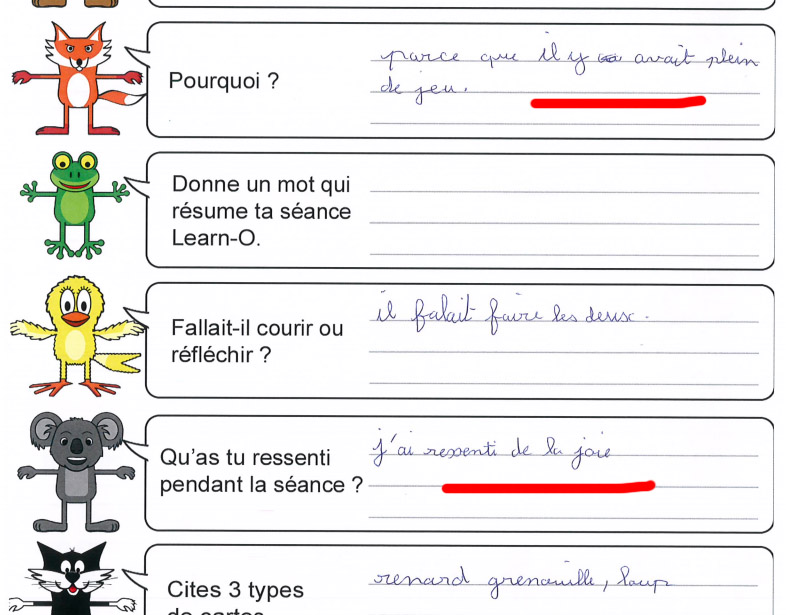 Pourquoi ?
parce que il y avait plein
de jeu.
Donne un mot qui
résume ta séance
Learn-O.
Fallait-il courir ou
réfléchir ?
il falait faire les deux.
Qu'as tu ressenti
pendant la séance ?
j'ai ressenti de la joie
Cites 3 types
de cartes
renard grenouille, loup